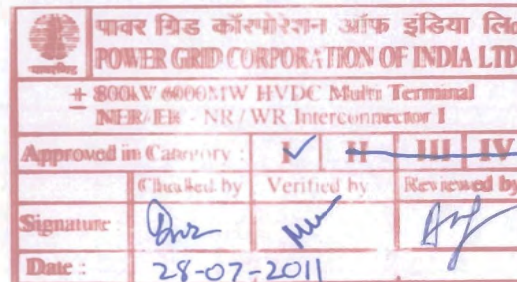 पावर ग्रिड कॉरपोरेशन ऑफ इंडिया लि
POWER GRID CORPORATION OF INDIA LTD
± 800kW 6000MW HVDC Multi Terminal
NER/ER - NR/WR Interconnector I
Approved in Category : I II III IV
Checked by Verified by Reviewed by
Signature
Date : 28-07-2011